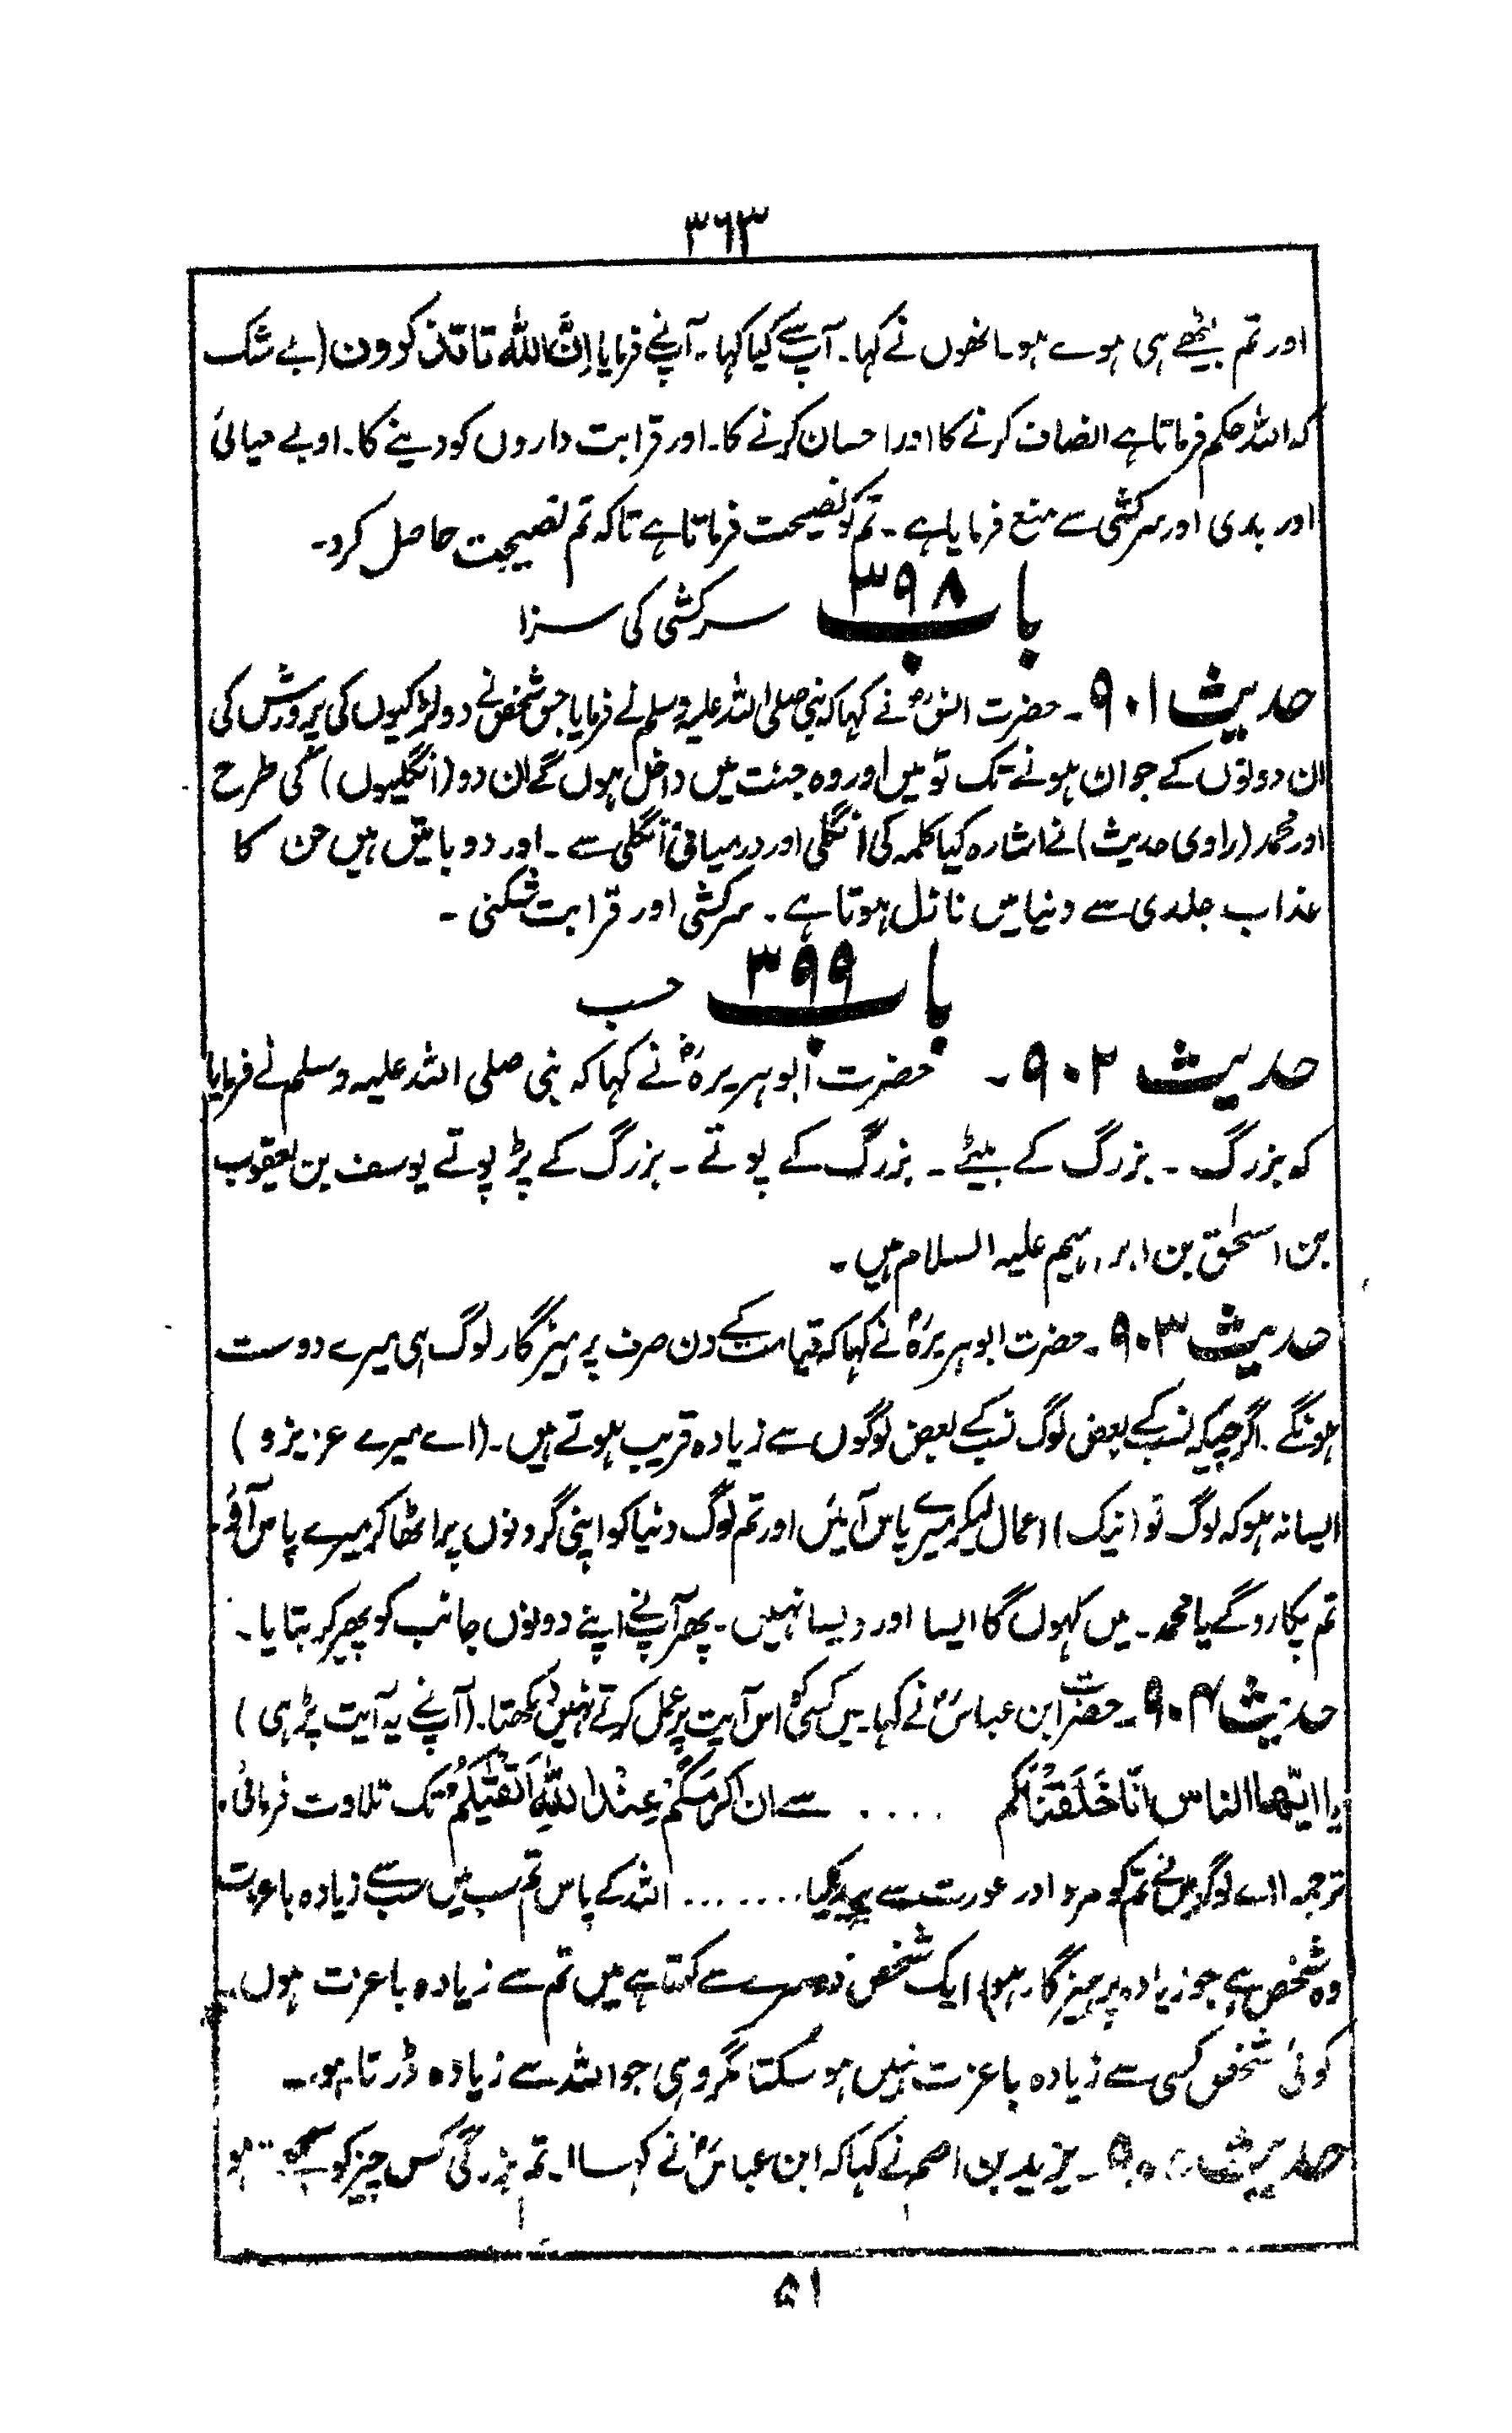 ۳۶۳
اور تم بیٹھے ہی ہوے ہو۔ انھوں نے کہا۔ آپ سے کیا کہا۔ آپنے فرمایا اِنَّ اللّٰہ تا تذکرون (بے شک
کہ اللہ حکم فرماتا ہے انصاف کرنے کا اور احسان کرنے کا۔ اور قرابت داروں کو دینے کا۔ او بے حیائی
اور بدی اور سرکشی سے منع فرمایا ہے۔ تم کو نصیحت فرماتا ہے تاکہ تم نصیحت حاصل کرو۔
باب ۳۹۸ سرکشی کی سزا
حدیث ۹۰۱۔ حضرت انسؓ نے کہا کہ نبی صلی اللہ علیہ وسلم نے فرمایا جس شخص نے دو لڑکیوں کی پرورش کی
ان دونوں کے جوان ہونے تک تو میں اور وہ جنت میں داخل ہوں گے ان دو (انگلیوں) کی طرح
اور محمد (راوی حدیث) نے اشارہ کیا کلمہ کی انگلی اور درمیانی انگلی سے۔ اور دو باتیں ہیں جن کا
عذاب جلدی سے دنیا میں نازل ہوتا ہے۔ سرکشی اور قرابت شکنی۔
باب ۳۹۹ حسب
حدیث ۹۰۲۔ حضرت ابوہریرہؓ نے کہا کہ نبی صلی اللہ علیہ وسلم نے فرمایا
کہ بزرگ۔ بزرگ کے بیٹے۔ بزرگ کے پوتے۔ بزرگ کے پڑپوتے یوسف بن یعقوب
بن اسحٰق بن ابراہیم علیہ السلام ہیں۔
حدیث ۹۰۳۔ حضرت ابوہریرہؓ نے کہا کہ قیامت کے دن صرف پرہیزگار لوگ ہی میرے دوست
ہونگے۔ اگرچیکہ نسب کے بعض لوگ نسب کے بعض لوگوں سے زیادہ قریب ہوتے ہیں۔ (اے میرے عزیزو)
ایسا نہ ہو کہ لوگ تو (نیک) اعمال لیکر میرے پاس آئیں اور تم لوگ دنیا کو اپنی گردنوں پر اٹھا کر میرے پاس آؤ۔
تم پکاروگے یا محمد۔ میں کہوں گا ایسا اور ویسا نہیں۔ پھر آپنے اپنے دونوں جانب کو پھیر کر بتایا۔
حدیث ۹۰۴۔ حضرت ابن عباسؓ نے کہا۔ میں کسی کو اس آیت پر عمل کرتے نہیں دیکھتا۔ (آپنے یہ آیت پڑہی)
یا ایّہا الناس انّا خَلَقْنَاکُم .... سے ان اکرمَکُم عِنْدَ اللّٰہِ اَتْقٰیکُمْ تک تلاوت فرمائی۔
ترجمہ (اے لوگو میں نے تم کو مرد اور عورت سے پیدا کیا....... اللہ کے پاس تم سب میں سب سے زیادہ باعزت
وہ شخص ہے جو زیادہ پرہیزگار ہو) ایک شخص دوسرے سے کہتا ہے میں تم سے زیادہ باعزت ہوں۔
کوئی شخص کسی سے زیادہ باعزت نہیں ہو سکتا مگر وہی جو اللہ سے زیادہ ڈرتا ہو۔
حدیث ۔ یزید بن اصم نے کہا کہ ابن عباسؓ نے کہا۔ تم بزرگی کس چیز کو سمجھتے ہو
۵۱